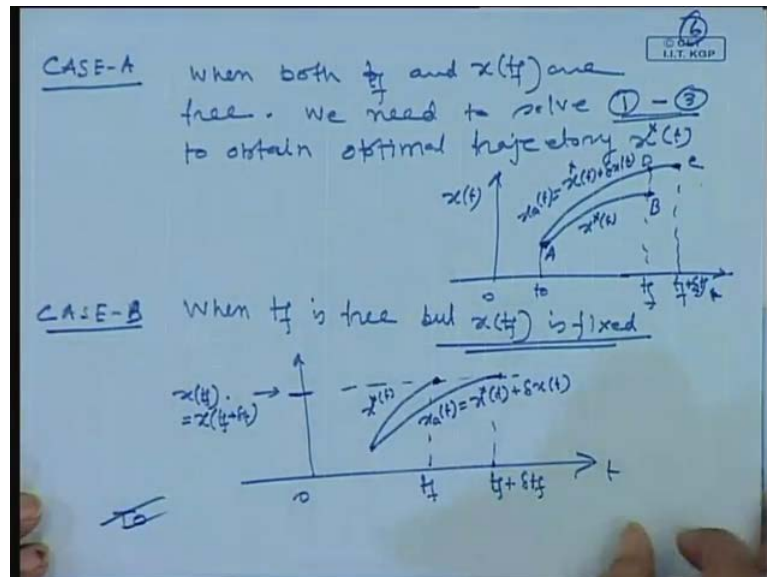 6
© CET
I.I.T. KGP
CASE-A When both tf and x(tf) are
free. We need to solve ① - ③
to obtain optimal trajectory x*(t)
x(t)
xa(t) = x*(t) + δx(t)
D C
B
x*(t)
A
0 t0 tf tf+δtf t
CASE-B When tf is free but x(tf) is fixed
x(tf)
= x(tf+δtf)
x*(t)
xa(t) = x*(t) + δx(t)
0 tf tf+δtf t
To